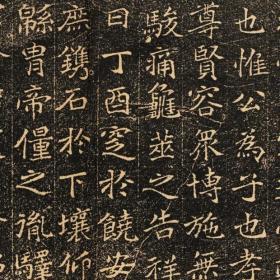 也惟公為子也孝
尊賢容眾博施無
駿痛龜筮之告祥
日丁酉窆於饒安
庶鐫石於下壤仰
緜胄帝之胤驛